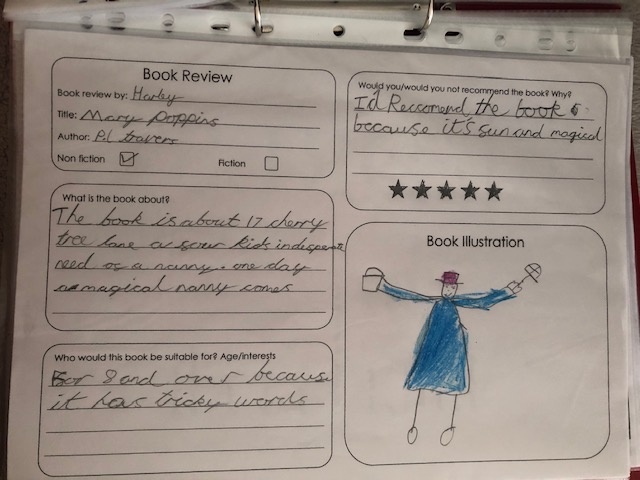 Book Review
Book review by: Harley
Title: Mary Poppins
Author: P.L travers
Non fiction
Fiction
What is the book about?
The book is about 17 cherry
tree lane a four kids in desperate
need of a nanny. one day
a magical nanny comes
Who would this book be suitable for? Age/interests
For 8 and over because
it has tricky words
Would you/would you not recommend the book? Why?
I'd Reccomend the book
because it's fun and magical
Book Illustration